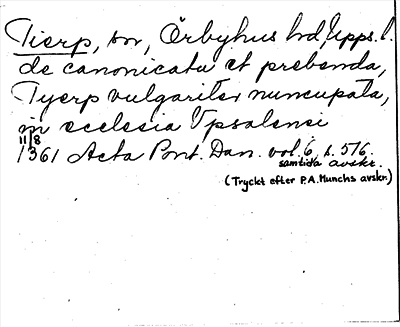 Tierp, sn, Örbyhus hd, Upps. l.
de canonicatu et prebenda,
Tyerp vulgariter nuncupata,
in ecclesia Vpsalensi
11/8
1361 Acta Pont. Dan. vol. 6, s. 516.
samtida avskr.
(Tryckt efter P.A. Munchs avskr.)